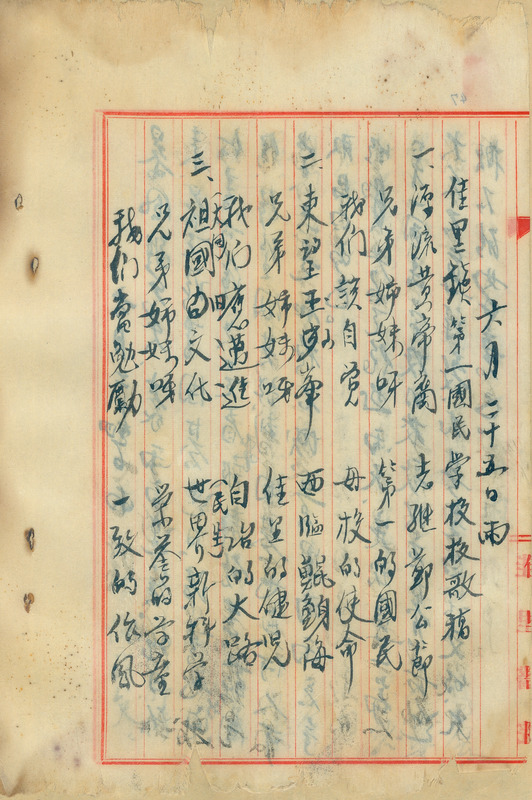 六月二十五日雨
佳里鎮第一國民学校校歌稿
一、源流黄帝裔 志継鄭公節
兄弟姉妹呀 第一的國民
我们該自覚 母校的使命
二、東望玉山峯 西臨鯤鯓海
兄弟姉妹呀 佳里的健児
我们應邁進 自治的大路
三、祖國的文化 世界新科学
兄弟姉妹呀 的学童
我们當勉勵 一致的作風